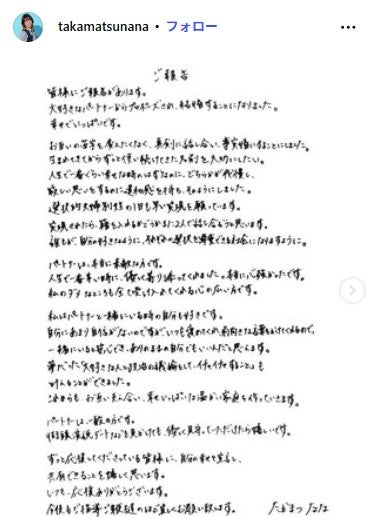 takamatsunana • フォロー
ご報告
皆様にご報告があります。
大好きなパートナーからプロポーズされ、結婚することになりました。
幸せでいっぱいです。
お互いの苗字を変えたくなく、真剣に話し合い、事実婚にすることにしました。
生まれてきてからずっと使い続けてきた名前を大切にしたい。
人生で一番くらい幸せな時のはずなのに、どちらかが我慢し、
寂しい思いをするのに違和感を持ち、そのようにしました。
選択的夫婦別姓の1日も早い実現を願っています。
実現されたら、籍を入れるかどうかまた2人で話し合おうと思います。
誰もが自分の好きなように、それぞれの選択を尊重できる社会になりますように。
パートナーは、本当に素敵な方です。
人生で一番辛い時に、優しく寄り添ってくれました。本当に心強かったです。
私のダメなところも全て受け入れてくれる心の広い方です。
私はパートナーと一緒にいる時の自分も好きです。
自分にあまり自信がないのですが、いつも褒めてくれ、前向きな言葉をかけてくれるので、
一緒にいると安心でき、ありのままの自分でもいいんだと思えます。
夢だった「大好きな人と政治の議論をして、イチャイチャすること」も
叶えることができました。
これからも、お互い支え合い、幸せいっぱいな温かい家庭を作っていきます。
パートナーは、一般の方です。
デートなどを見かけても、優しく見守っていただけたら嬉しいです。
ずっと応援してくださっている皆様に、自分の幸せを宣言し、
共有できることを嬉しく思います。
いつも、応援ありがとうございます。
今後もご指導ご鞭撻のほど宜しくお願い致します。
たかまつなな